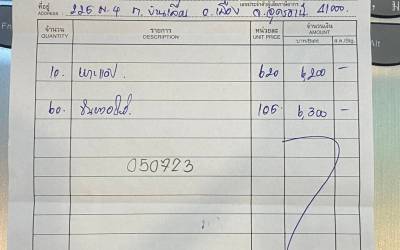 เลขประจำตัวผู้เสียภาษีอากร
ที่อยู่ ADDRESS 225 ม.4 ต. บ้านเลื่อม อ. เมือง จ. อุดรธานี 41000.
จำนวน รายการ หน่วยละ จำนวนเงิน
QUANTITY DESCRIPTION UNIT PRICE AMOUNT
บาท/Baht ส.ต./Stg.
10. 620 6,200 —
60. 105 6,300 —
050723
Alt